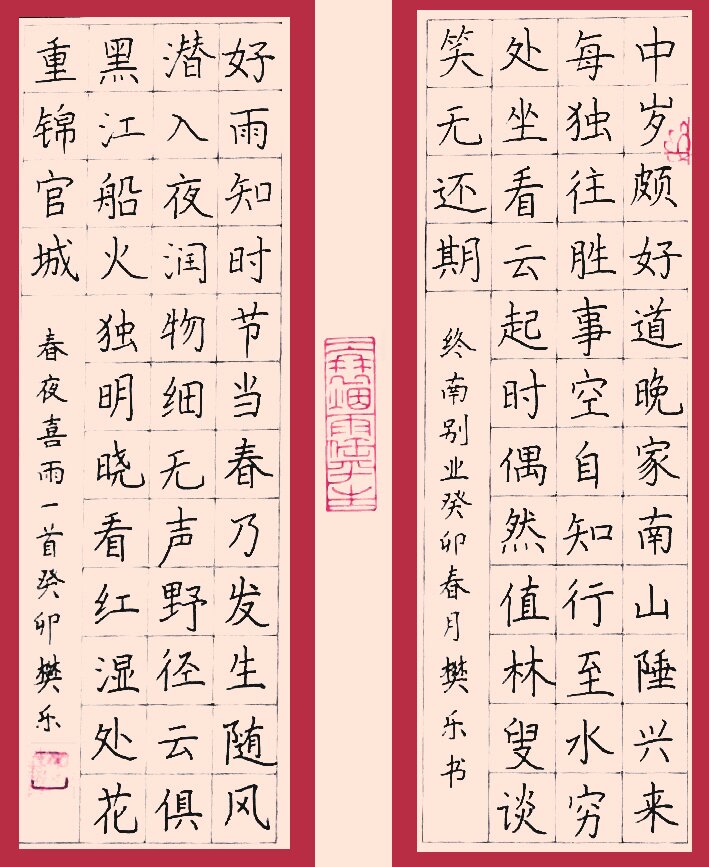 中岁颇好道晚家南山陲兴来
每独往胜事空自知行至水穷
处坐看云起时偶然值林叟谈
笑无还期
终南别业癸卯春月樊乐书
一蓑烟雨任平生
好雨知时节当春乃发生随风
潜入夜润物细无声野径云俱
黑江船火独明晓看红湿处花
重锦官城
春夜喜雨一首癸卯樊乐